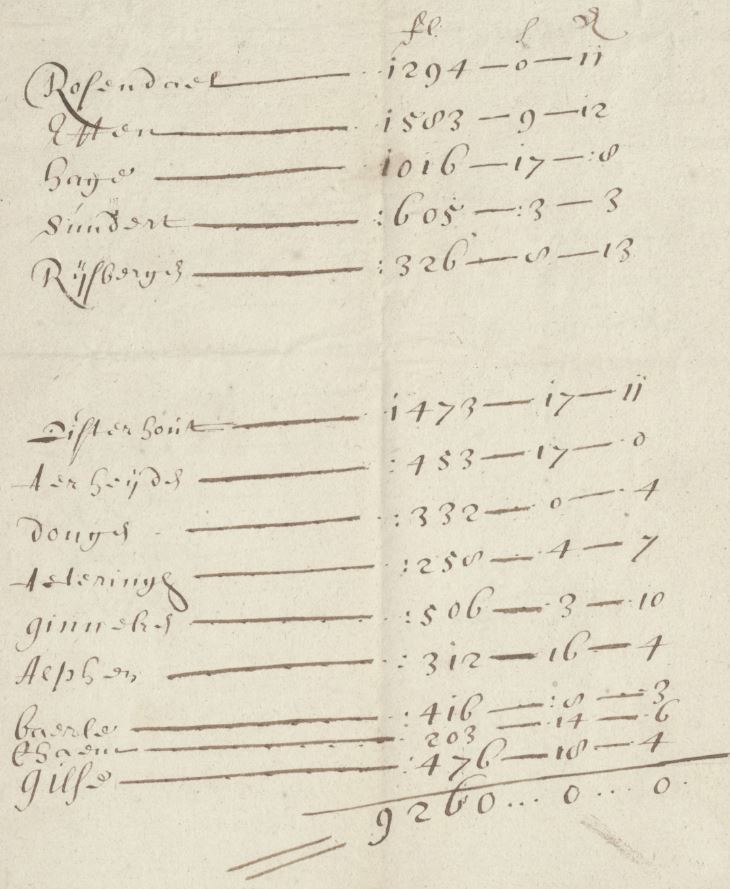 fl s d
Rosendael — 1294 — 0 — 11
Etten — 1583 — 9 — 12
hage — 1016 — 17 — :8
Sundert — :605 — :3 — 3
Rijsbergen — :326 — 8 — 13
Oisterhout — 1473 — 17 — 11
terheijden — :453 — 17 — 0
dongen — :332 — 0 — 4
teteringen — :258 — 4 — 7
ginneken — :506 — 3 — 10
Alphen — :312 — 16 — 4
baerle — :416 — :8 — 3
Chaem — 203 — 14 — 6
gilse — :476 — 18 — 4
9260 ... 0 ... 0